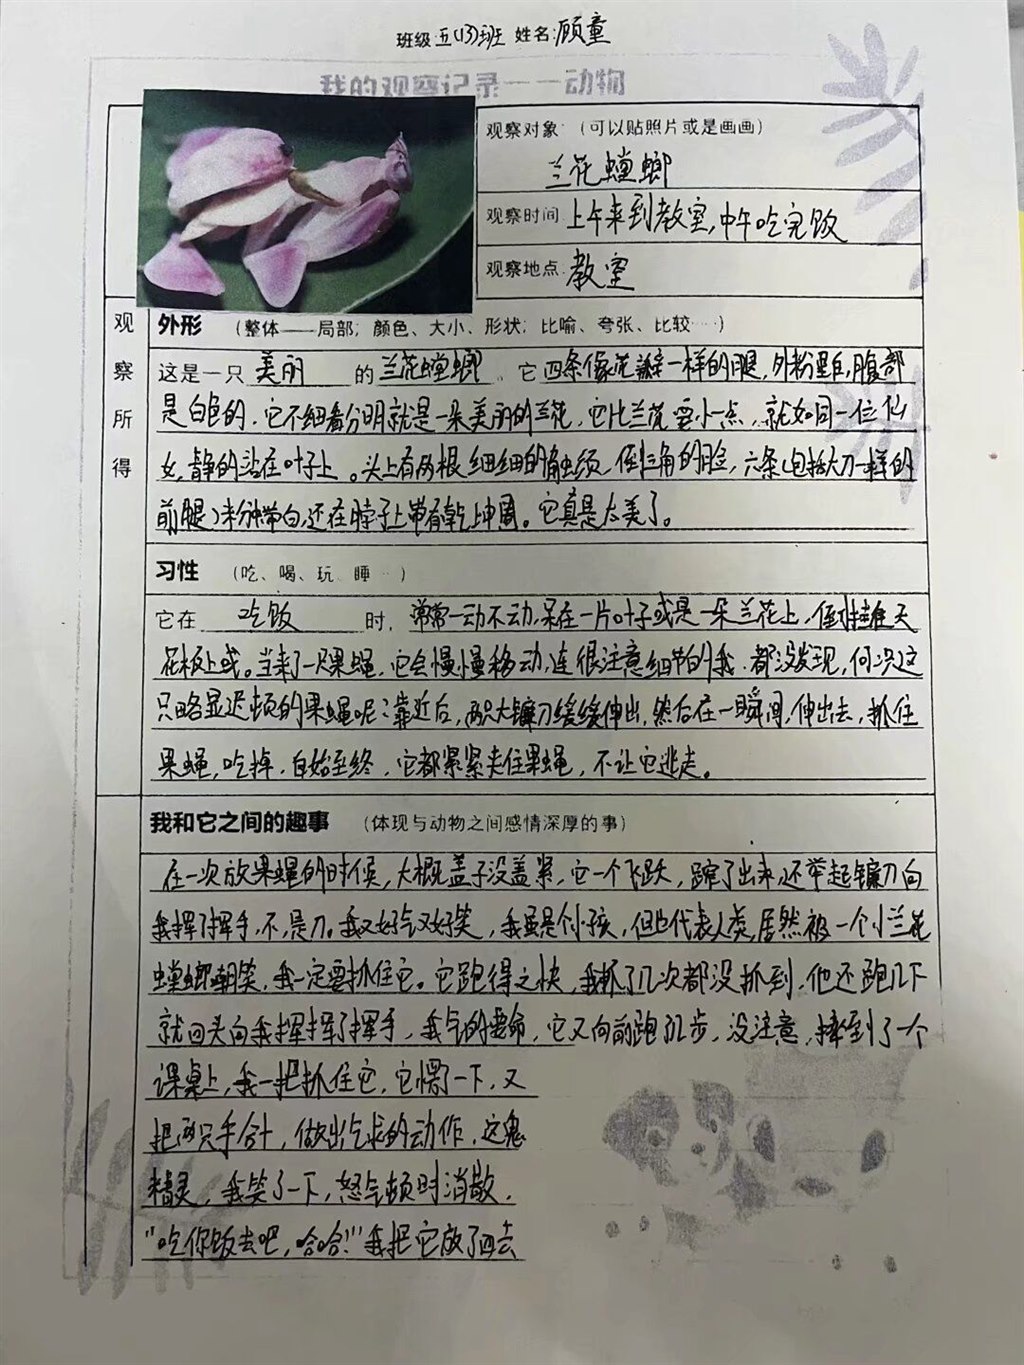 班级:五(13)班 姓名:顾童
我的观察记录——动物
观察对象:(可以贴照片或是画画)
兰花螳螂
观察时间:上午来到教室,中午吃完饭
观察地点:教室
观察所得
外形 (整体——局部;颜色、大小、形状;比喻、夸张、比较……)
这是一只 美丽 的 兰花螳螂 。它 四条像花瓣一样的腿,外粉里白,腹部
是白色的,它不细看分明就是一朵美丽的兰花,它比兰花要小一点,就如同一位仙
女,静的站在叶子上。头上有两根细细的触须,倒三角的脸,六条(包括大刀一样的
前腿)粉带白,还在脖子上带有乾上中周。它真是太美了。
习性 (吃、喝、玩、睡……)
它在 吃饭 时, 常常一动不动,呆在一片叶子或是一朵兰花上,倒挂在天
花板上或。当来了一只果蝇,它会慢慢移动,连很注意细节的我,都没发现,何况这
只略显迟顿的果蝇呢?靠近后,两只大镰刀缓缓伸出,然后在一瞬间,伸出去,抓住
果蝇,吃掉,自始至终,它都紧紧夹住果蝇,不让它逃走。
我和它之间的趣事 (体现与动物之间感情深厚的事)
在一次放果蝇的时候,大概盖子没盖紧,它一个飞跃,蹿了出来,还举起镰刀向
我挥了挥手,不,是刀。我又好气又好笑,我虽是个小孩,但也代表人类,居然被一个小兰花
螳螂嘲笑,我一定要抓住它。它跑得之快,我抓了几次都没抓到,他还跑几下
就回头向我挥挥了挥手,我气的要命,它又向前跑了几步,没注意,撞到了一个
课桌上,我一把抓住它,它愣了一下,又
把两只手合十,做出乞求的动作,这鬼
精灵,我笑了一下,怒气顿时消散,
“吃你饭去吧,哈哈!”我把它放了回去